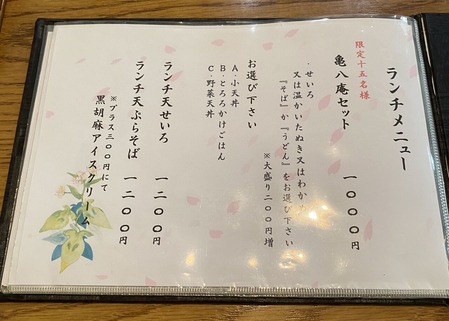 ランチメニュー
限定十五名様
亀八庵セット 一〇〇〇円
・せいろ
又は温かいたぬき又はわか
『そば』か『うどん』をお選び下さい
※大盛り二〇〇円増
お選び下さい
A・小天丼
B・とろろかけごはん
C・野菜天丼
ランチ天せいろ 一二〇〇円
ランチ天ぷらそば 一二〇〇円
※プラス三〇〇円にて
黒胡麻アイスクリーム